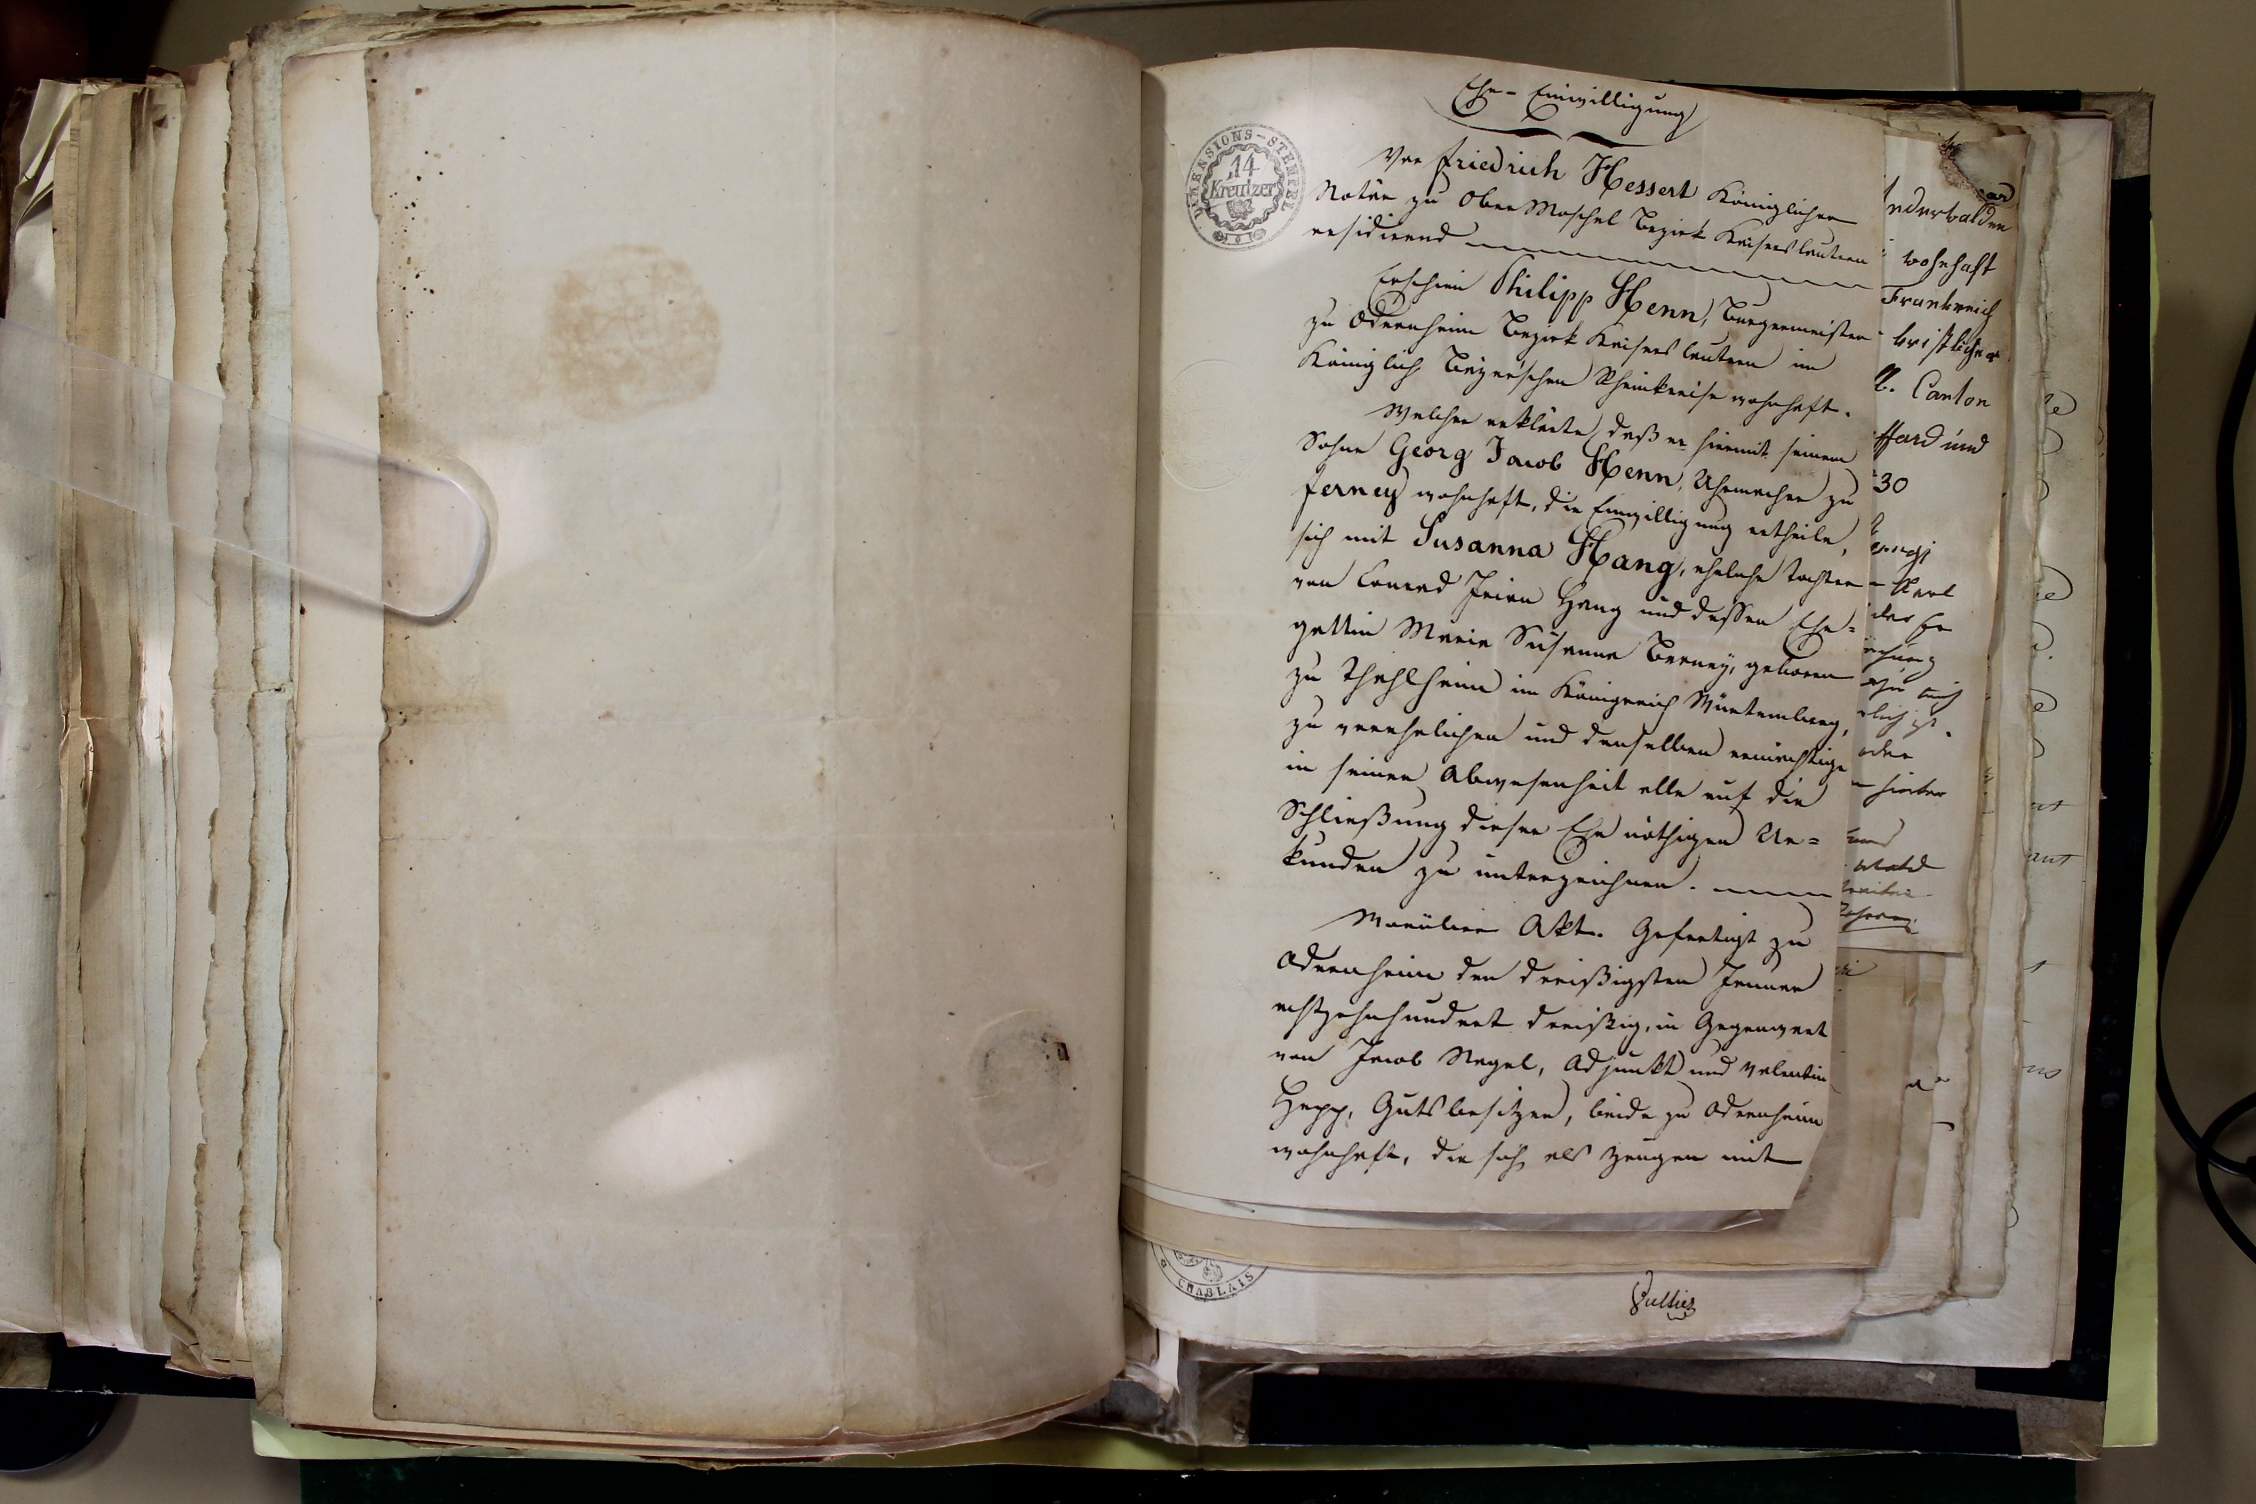 Ehe-Einwilligung
DIMENSIONS-STEMPEL
14
Kreutzer
Vor Friedrich Hessert Königlicher
Notär zu Ober Moschel Bezirk Kaiserslautern
residirend
Erschien Philipp Henn, Burgermeister
zu Odernheim Bezirk Kaiserslautern im
Königlich Bayerischen Rheinkreise wohnhaft.
Welcher erklärte, daß er hiermit seinem
Sohne Georg Jacob Henn, Uhrmacher zu
Ferney wohnhaft, die Einwilligung ertheile,
sich mit Susanna Hang, eheliche Tochter
von Conrad Hang und dessen Ehe=
gattin Maria Susanna Berney, geboren
zu im Königreich Würtemberg,
zu verehelichen und denselben ermächtige
in seiner Abwesenheit alle auf die
Schließung dieser Ehe nöthigen Ur=
kunden zu unterzeichnen.
Worüber Akt. Gefertigt zu
Odernheim den dreißigsten Jenner
achtzehnhundert dreißig, in Gegenwart
von Jacob Nagel, Adjunkt und Valentin
Hepp, Gutsbesitzer, beide zu Odernheim
wohnhaft, die sich als Zeugen mit
wohnhaft
Frankreich
Canton
und
30
oder
CHABLAIS